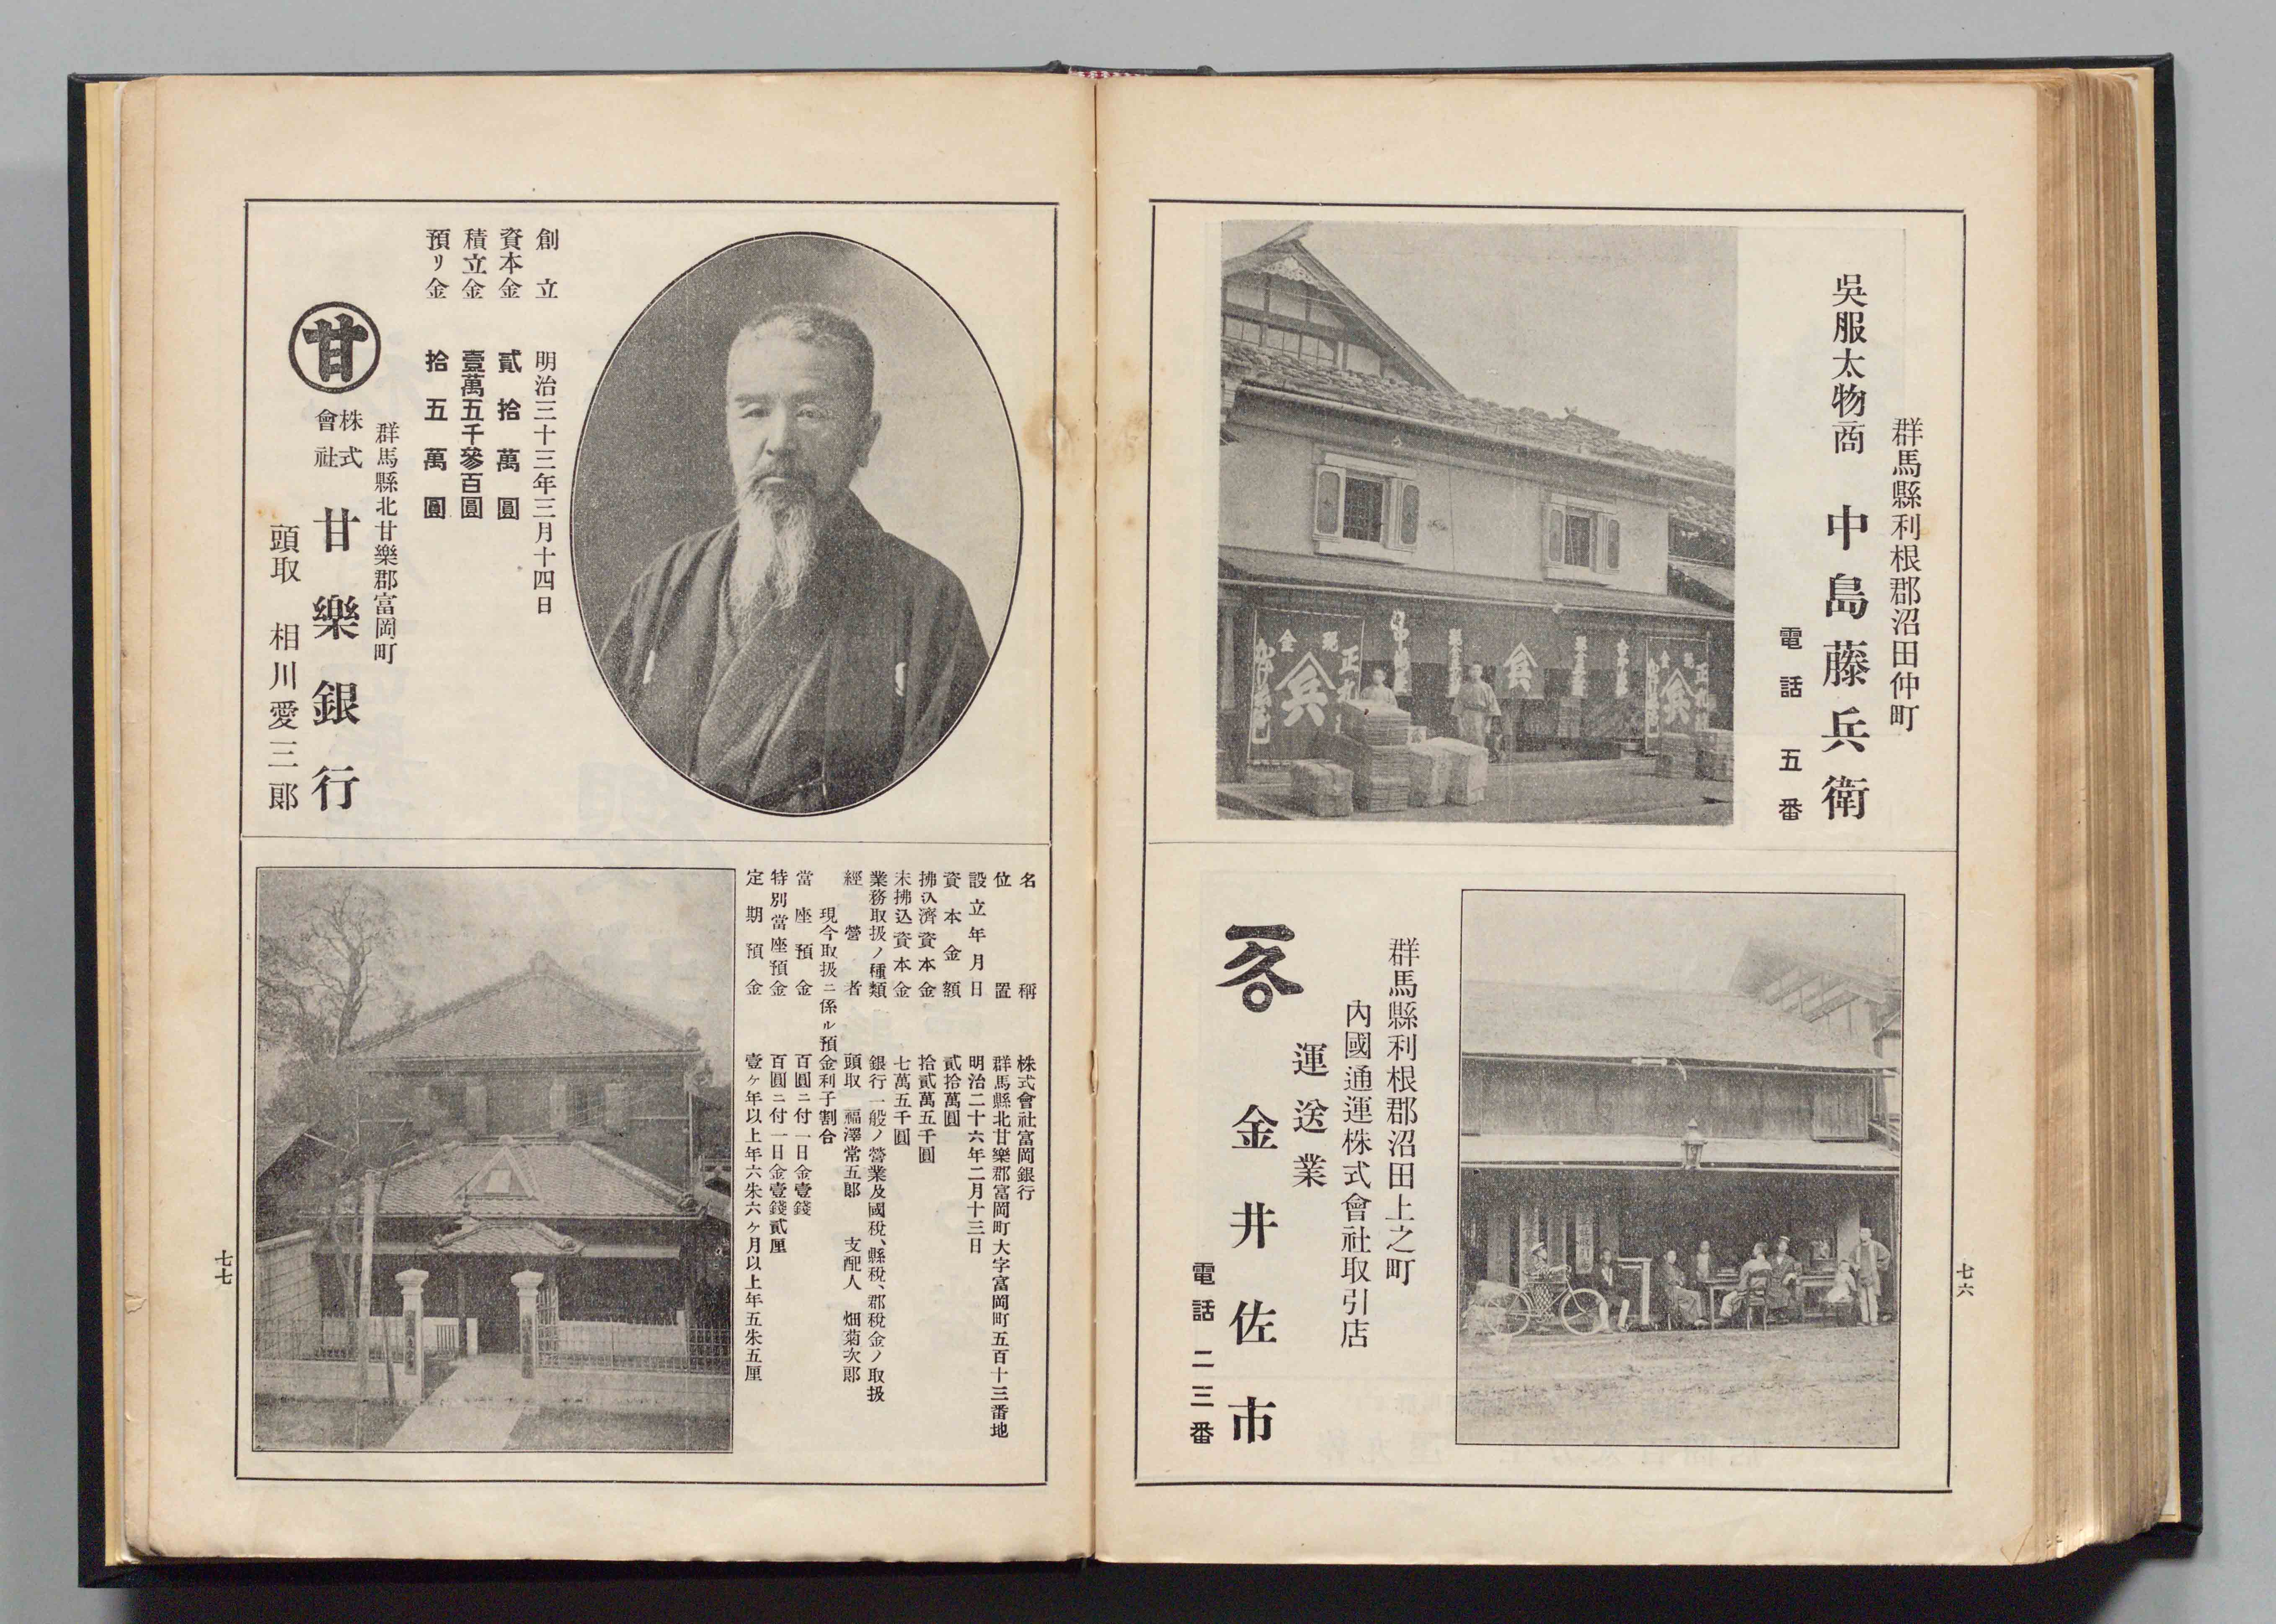 群馬縣利根郡沼田仲町
吳服太物商　中島藤兵衛
電話　五番
正
現
金
兵
兵
正
現
金
兵
群馬縣利根郡沼田上之町
內國通運株式會社取引店
運送業
金井佐市
電話二三番
七六
創立　明治三十三年三月十四日
資本金　貳拾萬圓
積立金　壹萬五千參百圓
預リ金　拾五萬圓
群馬縣北甘樂郡富岡町
甘
株式會社　甘樂銀行
頭取　相川愛三郞
名稱　株式會社富岡銀行
位置　群馬縣北甘樂郡富岡町大字富岡町五百十三番地
設立年月日　明治二十六年二月十三日
資本金額　貳拾萬圓
拂込濟資本金　拾貳萬五千圓
未拂込資本金　七萬五千圓
業務取扱ノ種類　銀行一般ノ營業及國稅、縣稅、郡稅金ノ取扱
經營者　頭取　福澤常五郞　支配人　畑菊次郞
現今取扱ニ係ル預金利子割合
當座預金　百圓ニ付一日金壹錢
特別當座預金　百圓ニ付一日金壹錢貳厘
定期預金　壹ヶ年以上年六朱六ヶ月以上年五朱五厘
七七